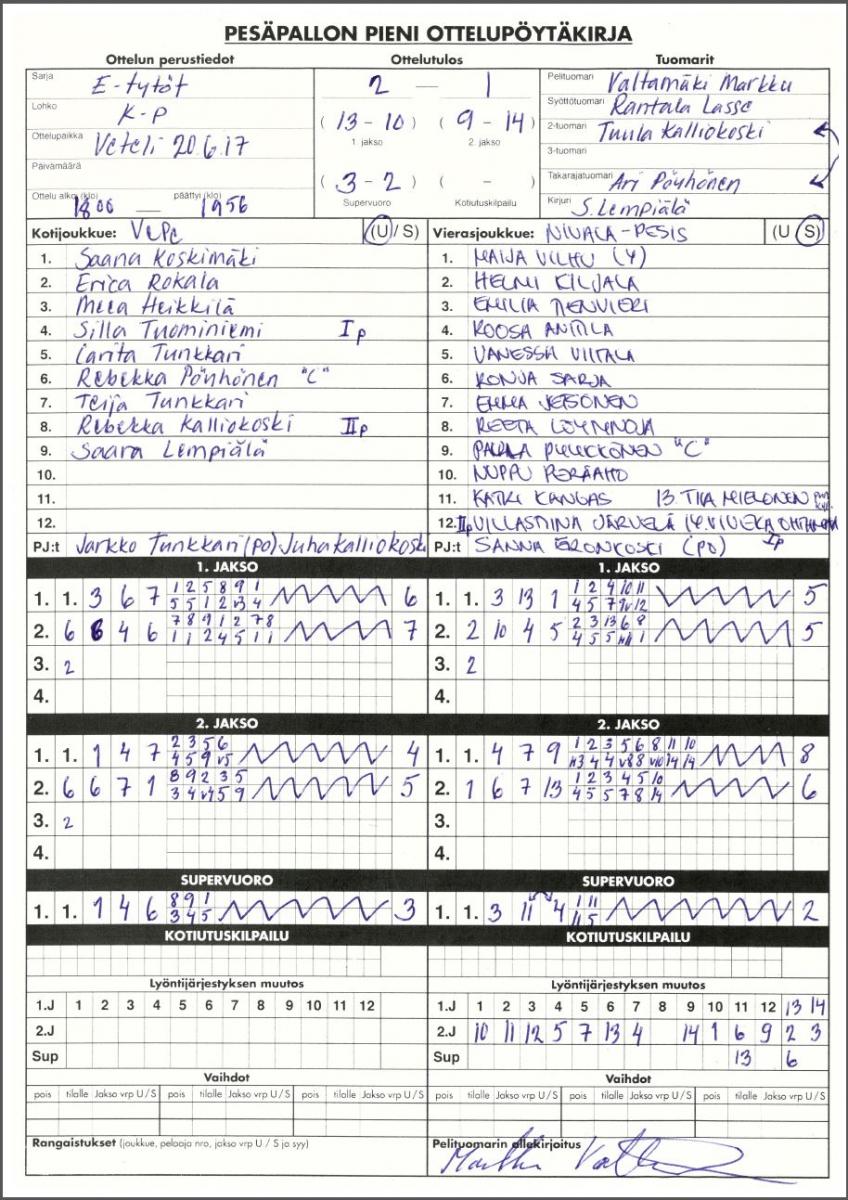 PESÄPALLON PIENI OTTELUPÖYTÄKIRJA
Ottelun perustiedot
Sarja E-tytöt
Lohko K-P
Ottelupaikka Veteli 20.6.17
Päivämäärä
Ottelu alkoi (klo) 1800 — päättyi (klo) 1956
Ottelutulos
2 — 1
(13 - 10) (9 - 14)
1. jakso 2. jakso
(3 - 2) ( - )
Supervuoro Kotiutuskilpailu
Tuomarit
Pelituomari Valtamäki Markku
Syöttötuomari Rantala Lasse
2-tuomari Tuula Kalliokoski
3-tuomari
Takarajatuomari Ari Pöyhönen
Kirjuri S. Lempiälä
Kotijoukkue: VePe (U / S)
1. Saana Koskimäki
2. Erica Rokala
3. Meea Heikkilä
4. Silla Tuominiemi I p
5. Carita Tunkkari
6. Rebekka Pöyhönen "C"
7. Teija Tunkkari
8. Rebekka Kalliokoski II p
9. Saara Lempiälä
10.
11.
12.
PJ:t Jarkko Tunkkari (PO) Juha Kalliokoski
Vierasjoukkue: NIVALA-PESIS (U / S)
1. MAIJA VILHU (Y)
2. HELMI KILJALA
3. EMILIA
4. ROOSA ANTTILA
5. VANESSA VIITALA
6. RONJA SARJA
7. EMMA
8. REETA LÖYTYNOJA
9. "C"
10. NUPPU PERÄAHO
11. KATRI KANGAS 13 TIIA MIELONEN
12. II p VILLASTIINA JÄRVELÄ 14. VIIVEKA I p
PJ:t SANNA ERONKOSKI (PO)
1. JAKSO
1. 1. 3 6 7 6
2. 6 6 4 6 7
3. 2
4.
1. JAKSO
1. 1. 3 13 1 5
2. 2 10 4 5 5
3. 2
4.
2. JAKSO
1. 1. 1 4 7 4
2. 6 6 7 1 5
3. 2
4.
2. JAKSO
1. 1. 4 7 9 8
2. 1 6 7 13 6
3.
4.
SUPERVUORO
1. 1. 1 4 6 3
SUPERVUORO
1. 1. 3 11 4 2
KOTIUTUSKILPAILU
KOTIUTUSKILPAILU
Lyöntijärjestyksen muutos
1.J 1 2 3 4 5 6 7 8 9 10 11 12
2.J
Sup
Lyöntijärjestyksen muutos
1.J 1 2 3 4 5 6 7 8 9 10 11 12 13 14
2.J 10 11 12 5 7 13 4 14 1 6 9 2 3
Sup 13 6
Vaihdot
pois tilalle Jakso vrp U / S pois tilalle Jakso vrp U / S pois tilalle Jakso vrp U / S
Vaihdot
pois tilalle Jakso vrp U / S pois tilalle Jakso vrp U / S pois tilalle Jakso vrp U / S
Rangaistukset (joukkue, pelaaja nro, jakso vrp U / S ja syy)
Pelituomarin allekirjoitus